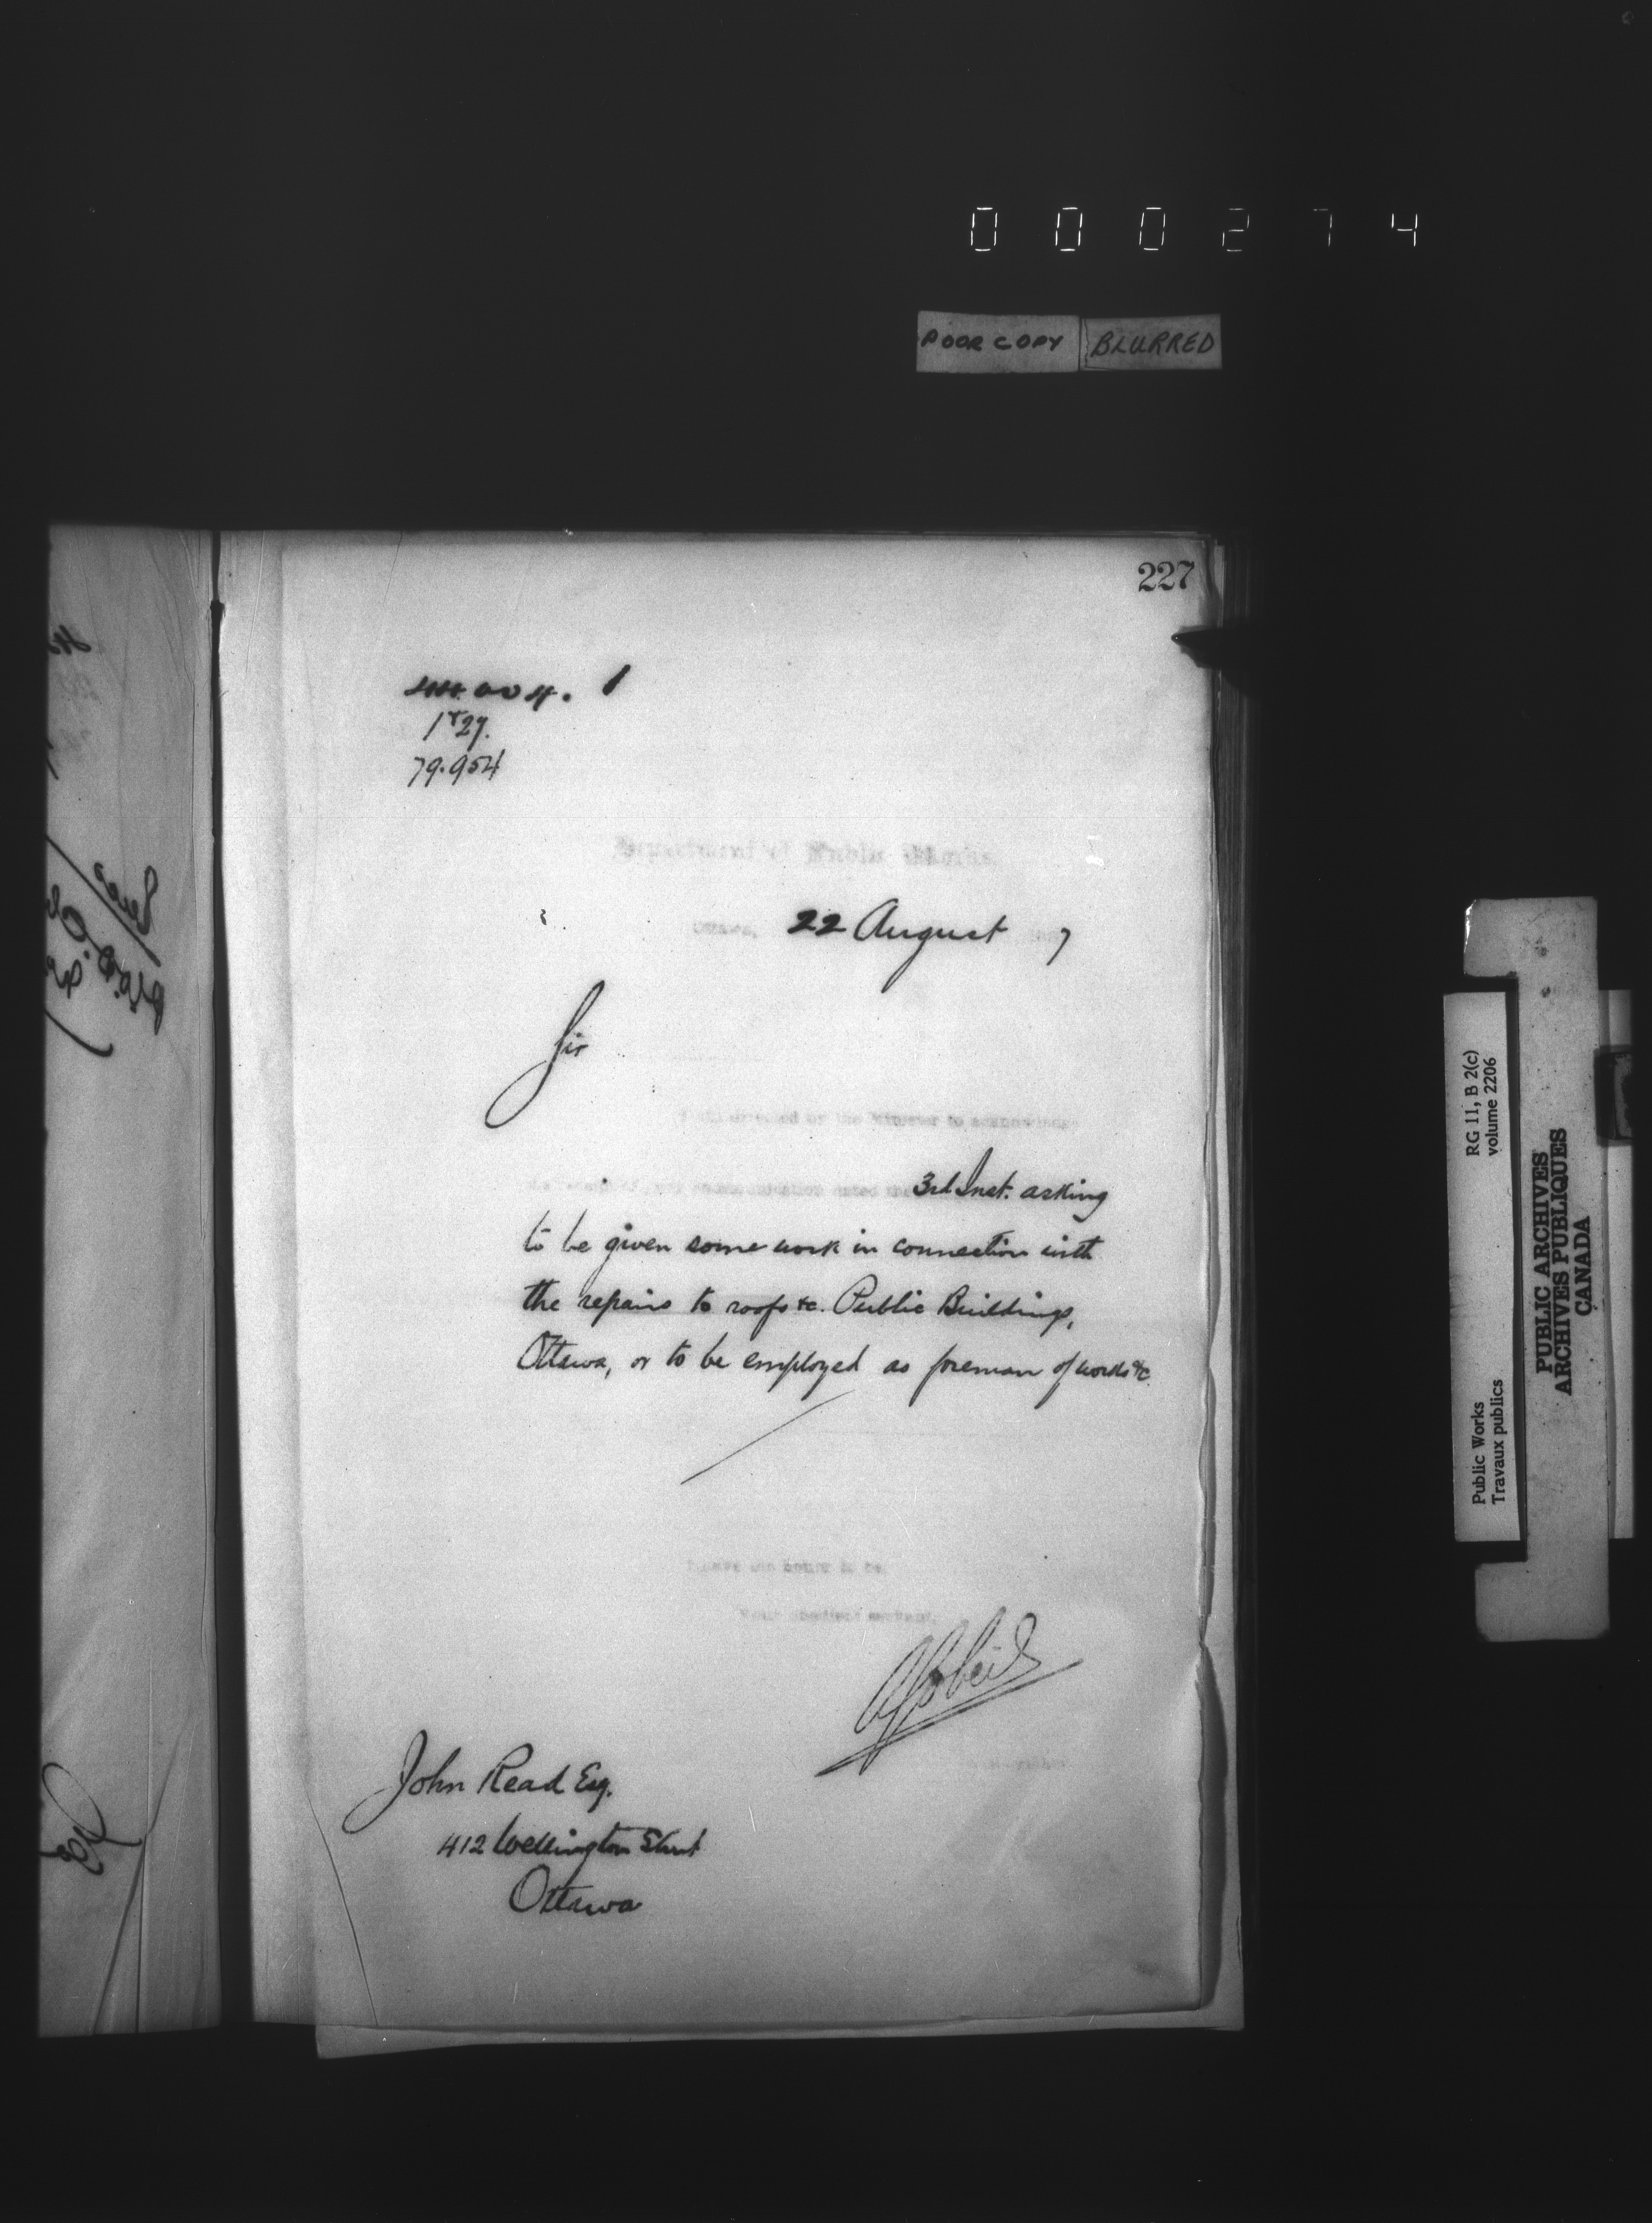 000274
POOR COPY BLURRED
227
1
1 & 27.
79.954
Department of Public Works
Ottawa, 22 August 7
Sir
I am directed by the Minister to acknowledge
communication dated the 3rd Inst. asking
to be given some work in connection with
the repairs to roofs &c. Public Buildings,
Ottawa, or to be employed as foreman of works &c
I have the honor to be,
Your obedient servant,
John Read Esq.
412 Wellington Street
Ottawa
RG 11, B 2(c)
volume 2206
Public Works
Travaux publics
PUBLIC ARCHIVES
ARCHIVES PUBLIQUES
CANADA